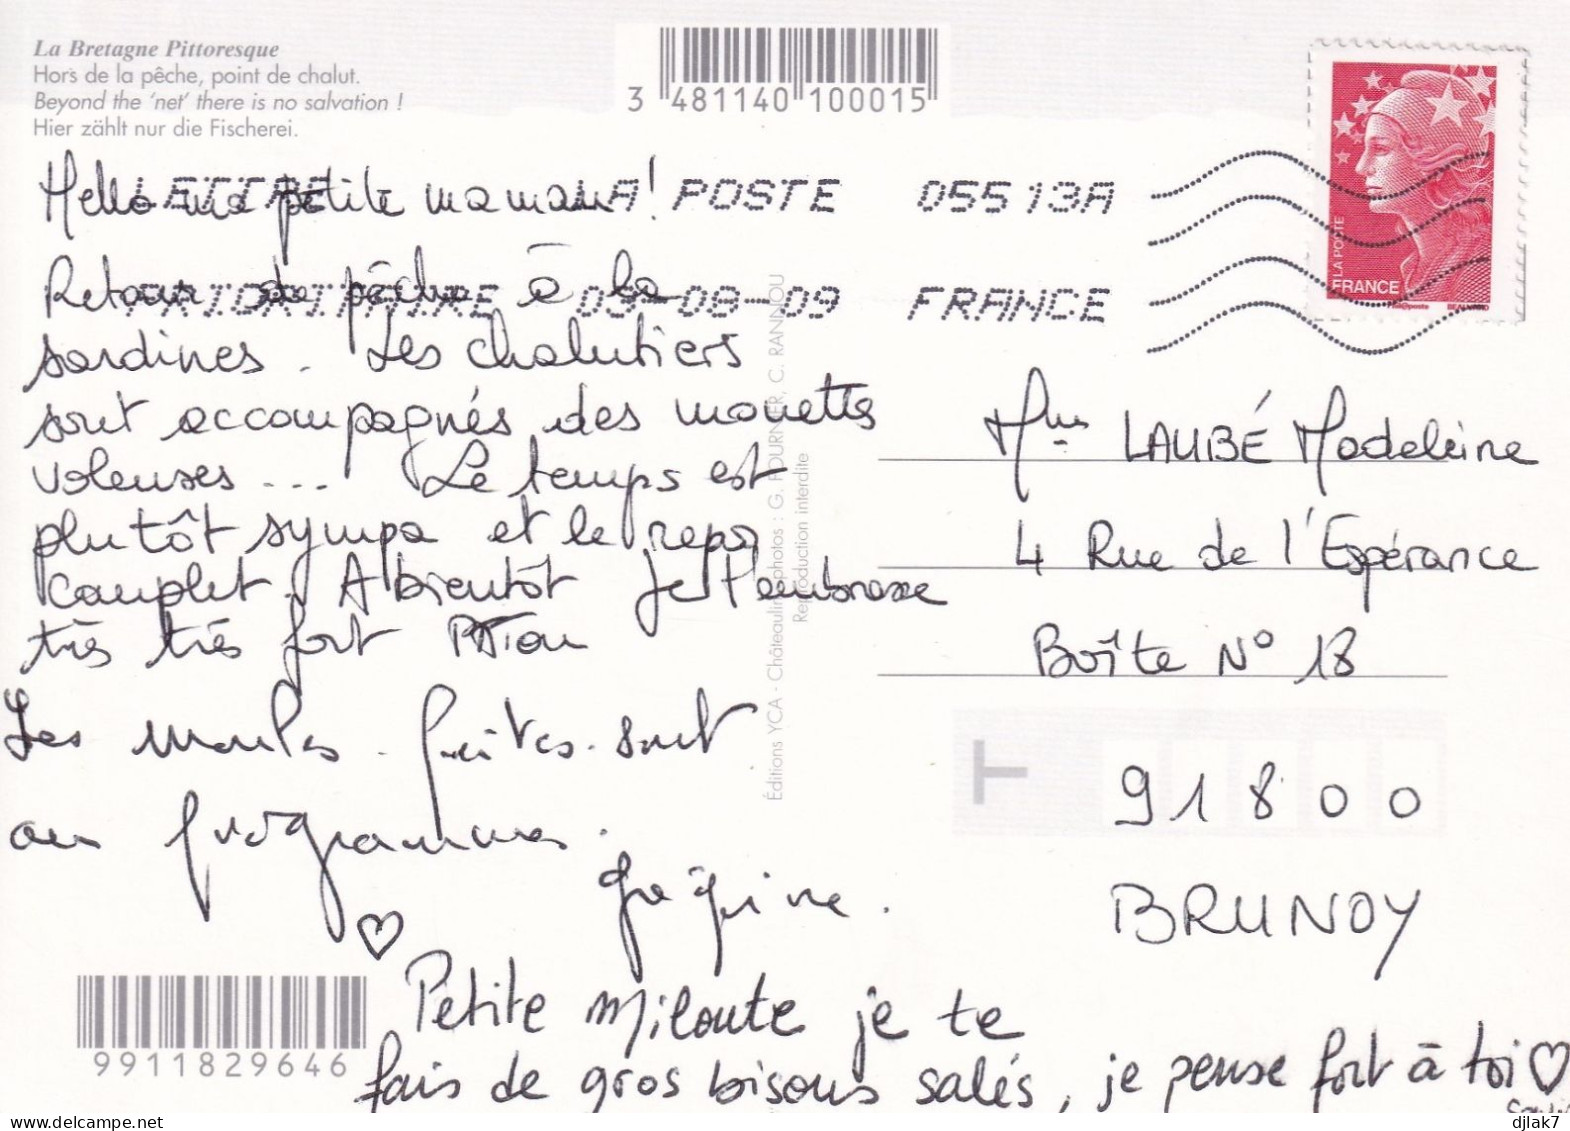 La Bretagne Pittoresque
Hors de la pêche, point de chalut.
Beyond the 'net' there is no salvation !
Hier zählt nur die Fischerei.
3 481140 100015
LETTRE LA POSTE 05513A
PRIORITAIRE 03-08-09 FRANCE
LA POSTE
FRANCE
Hello ma petite maman !
Retour de pêche à la
sardines. Les chalutiers
sont accompagnés des mouettes
voleuses... Le temps est
plutôt sympa et le repos
complet. A bientôt Je t'embrasse
très très fort
Les moules-frites sont
au programme.
♡
Petite Miloute je te
fais de gros bisous salés, je pense fort à toi ♡
Mme LAUBÉ Madeleine
4 Rue de l'Espérance
Boîte N° 18
91800
BRUNOY
T
Éditions YCA - Châteaulin - photos : G. FOURNIER, C. RANNOU
Reproduction interdite
9911829646
delcampe.net
djlak7